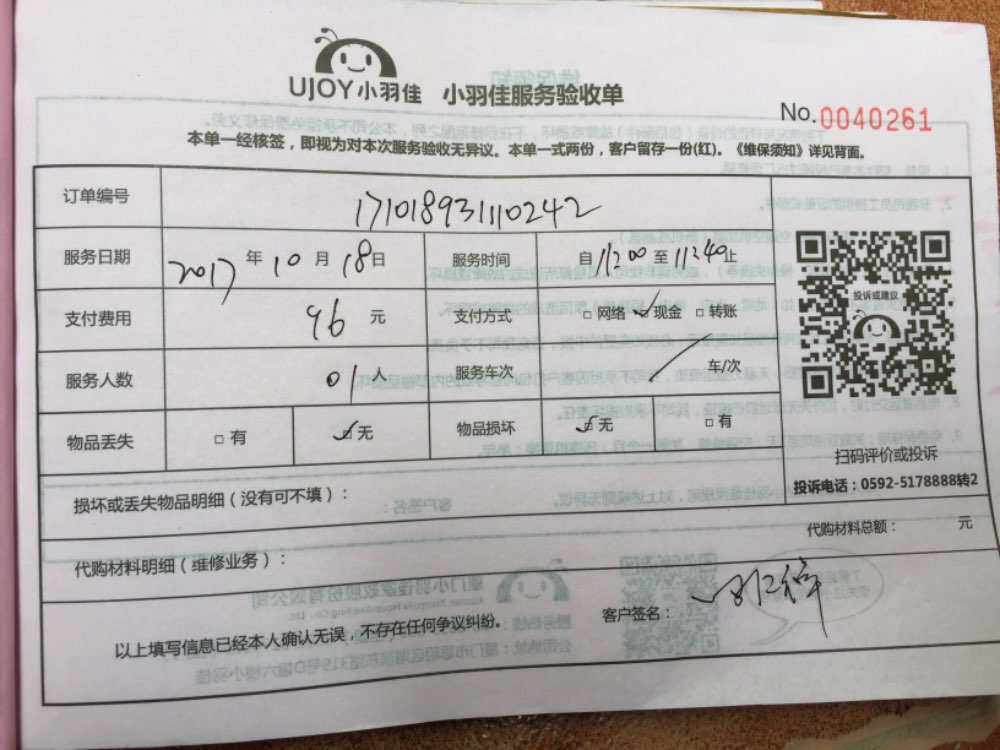 UJOY小羽佳 小羽佳服务验收单
No.0040261
本单一经核签，即视为对本次服务验收无异议。本单一式两份，客户留存一份(红)。《维保须知》详见背面。
订单编号 171018931110242
服务日期 2017 年 10 月 18 日 服务时间 自 11:00 至 11:40 止
支付费用 96 元 支付方式 □网络 ☑现金 □转账
投诉或建议
服务人数 01 人 服务车次 / 车/次
物品丢失 □有 ☑无 物品损坏 ☑无 □有
扫码评价或投诉
投诉电话：0592-5178888转2
损坏或丢失物品明细（没有可不填）：
代购材料总额： 元
代购材料明细（维修业务）：
客户签名：
以上填写信息已经本人确认无误，不存在任何争议纠纷。